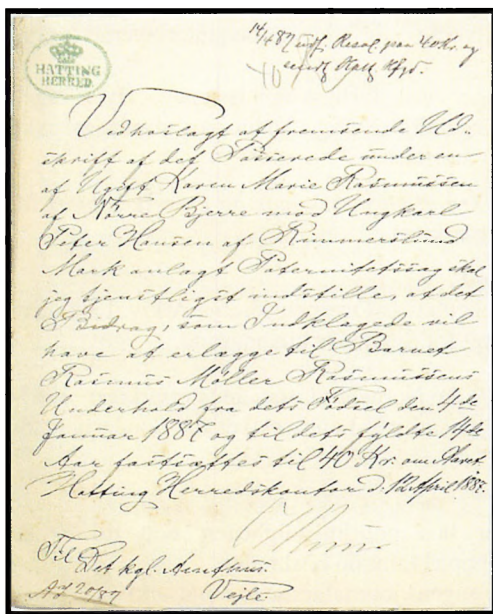 HATTING
HERRED
14/4 87 udf. Resol. paa 40 Kr. og
Vedhoslagt at fremsende Ud-
skrift af det Passerede under en
af Ugift Karen Marie Rasmussen
af Nörre Bjerre mod Ungkarl
Peter Hansen af Rimmerslund
Mark anlagt Paternitetssag skal
jeg tjenstligst indstille, at det
Bidrag, som Indklagede vil
have at erlægge til Barnet
Rasmus Möller Rasmussens
Underhold fra dets Födsel den 4de
Januar 1887 og til dets fyldte 14de
Aar fastsættes til 40 Kr. om Aaret
Hatting Herredskontor d. 12 April 1887.
Til
Det kgl. Amthus.
Vejle.